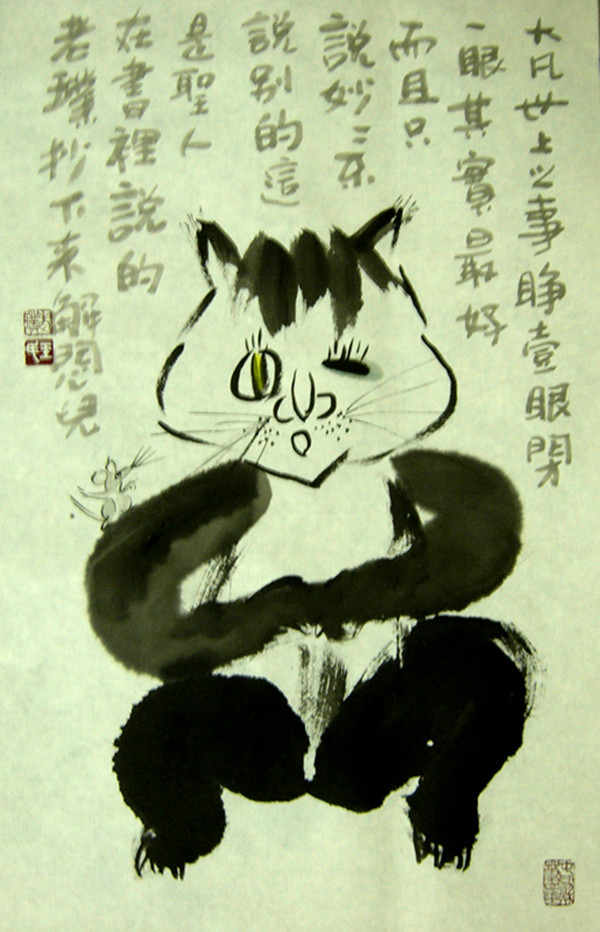 大凡世上之事睁壹眼閉
一眼其實最好
而且只
說妙〻不
說别的這
是聖人
在書裡說的
老璞抄下来解悶兒